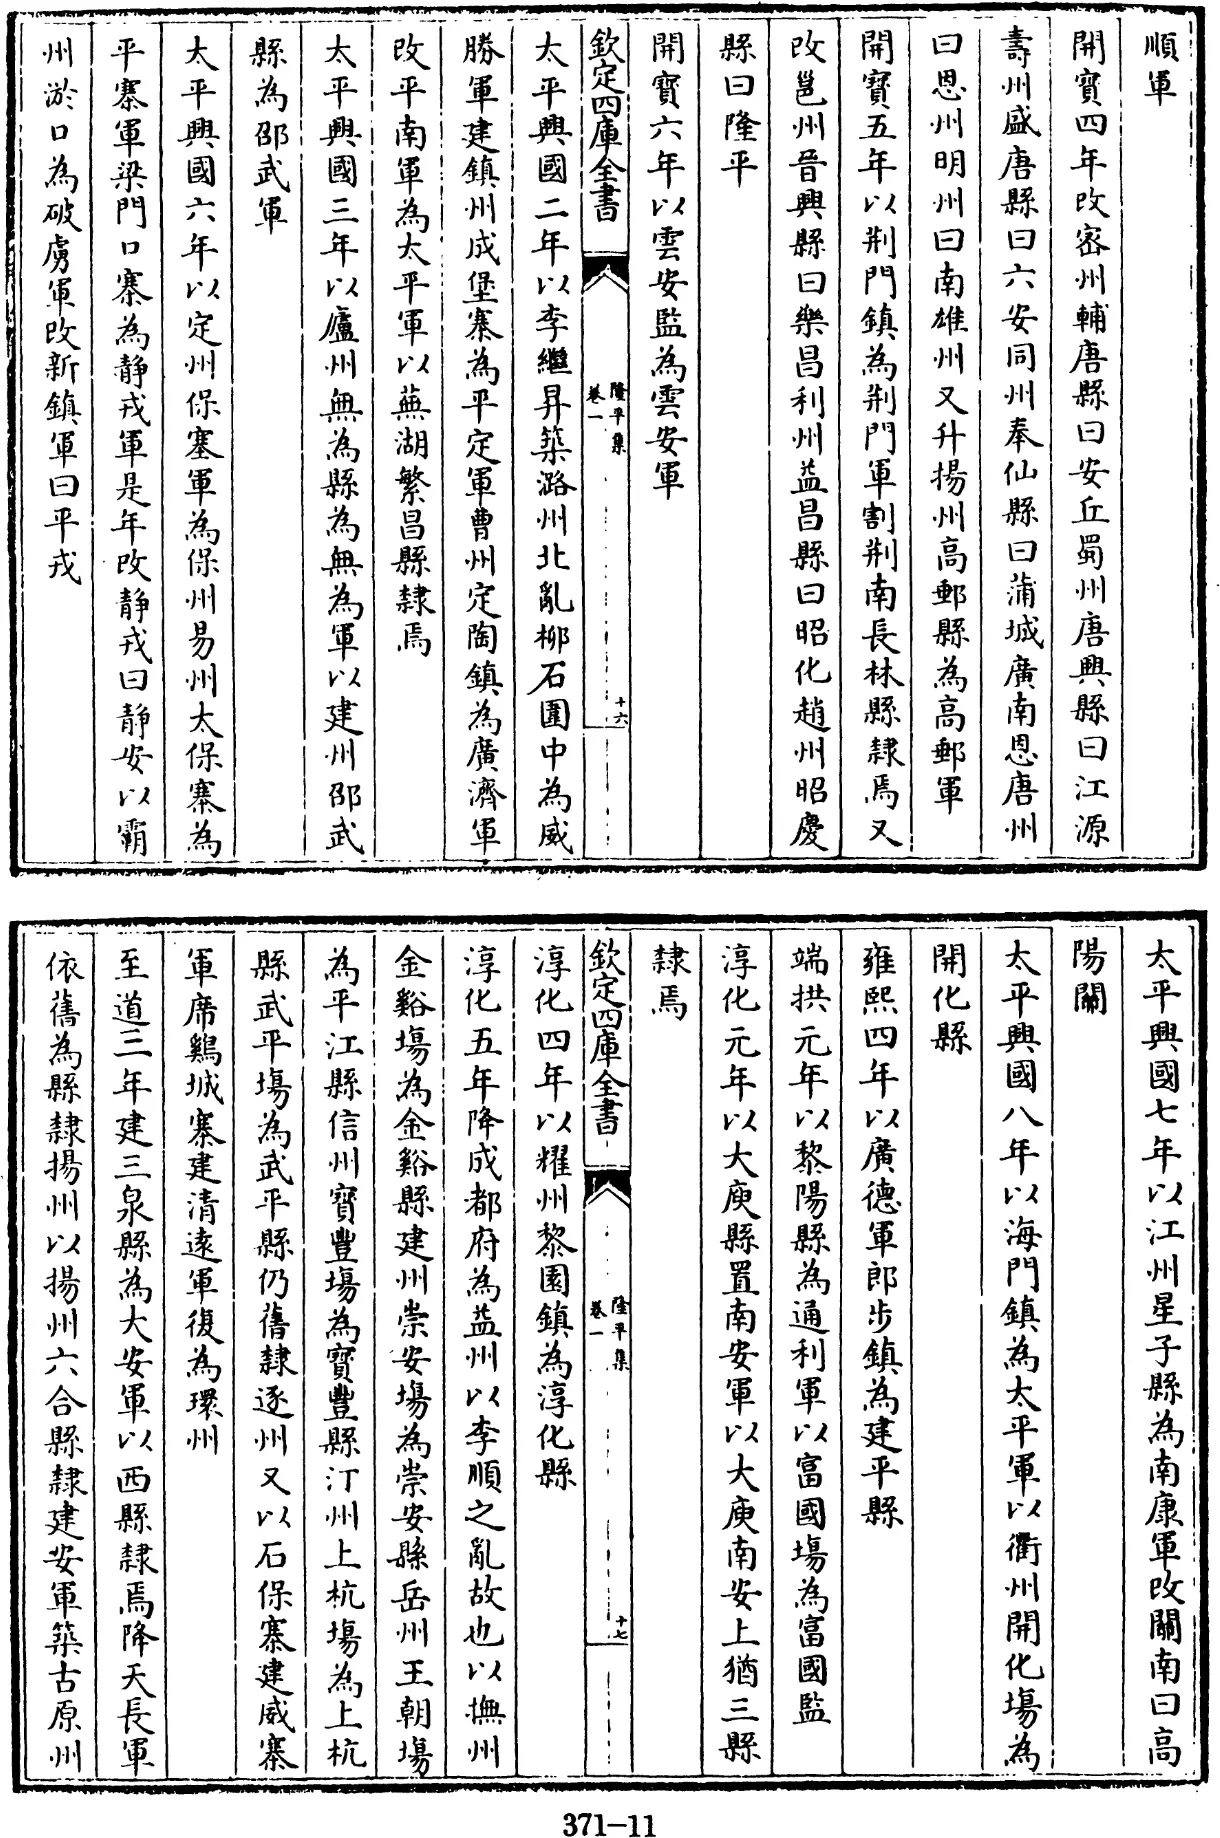 順軍
開寶四年改密州輔唐縣曰安丘蜀州唐興縣曰江源
壽州盛唐縣曰六安同州奉仙縣曰蒲城廣南恩唐州
曰恩州明州曰南雄州又升揚州高郵縣為高郵軍
開寶五年以荆門鎮為荆門軍割荆南長林縣隸焉又
改邕州晉興縣曰樂昌利州益昌縣曰昭化趙州昭慶
縣曰隆平
開寶六年以雲安監為雲安軍
欽定四庫全書
隆平集
卷一
十六
太平興國二年以李繼昇築潞州北亂柳石圍中為威
勝軍建鎮州成堡寨為平定軍曹州定陶鎮為廣濟軍
改平南軍為太平軍以蕪湖繁昌縣隸焉
太平興國三年以廬州無為縣為無為軍以建州邵武
縣為邵武軍
太平興國六年以定州保塞軍為保州易州太保寨為
平寨軍梁門口寨為靜戎軍是年改靜戎曰靜安以霸
州淤口為破虜軍改新鎮軍曰平戎
太平興國七年以江州星子縣為南康軍改關南曰高
陽關
太平興國八年以海門鎮為太平軍以衢州開化場為
開化縣
雍熙四年以廣德軍郎步鎮為建平縣
端拱元年以黎陽縣為通利軍以富國場為富國監
淳化元年以大庾縣置南安軍以大庾南安上猶三縣
隸焉
欽定四庫全書
隆平集
卷一
十七
淳化四年以耀州黎園鎮為淳化縣
淳化五年降成都府為益州以李順之亂故也以撫州
金谿場為金谿縣建州崇安場為崇安縣岳州王朝場
為平江縣信州寶豐場為寶豐縣汀州上杭場為上杭
縣武平場為武平縣仍舊隸逐州又以石保寨建威寨
軍席鷄城寨建清遠軍復為環州
至道三年建三泉縣為大安軍以西縣隸焉降天長軍
依舊為縣隸揚州以揚州六合縣隸建安軍築古原州
371-11